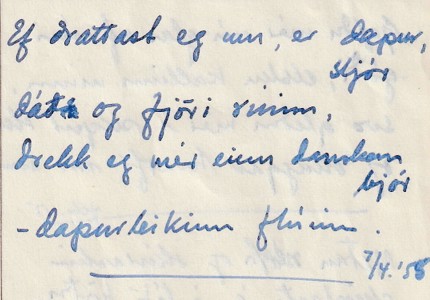 Ef drattast eg um, er dapur,
sljór
og fjöri rúinn,
drekk eg mér einn danskan
bjór
- dapurleikinn flúinn.
7/4. '58